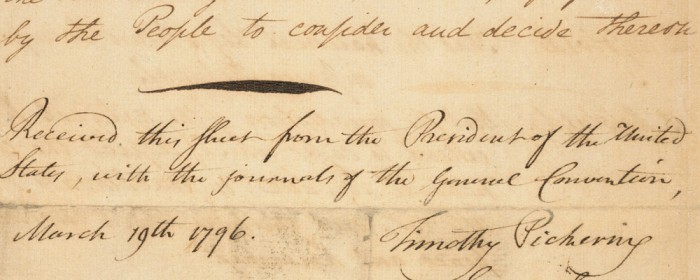 the
by the People to consider and decide thereon
Received this sheet from the President of the United
States, with the journals of the General Convention,
March 19th 1796.
Timothy Pickering